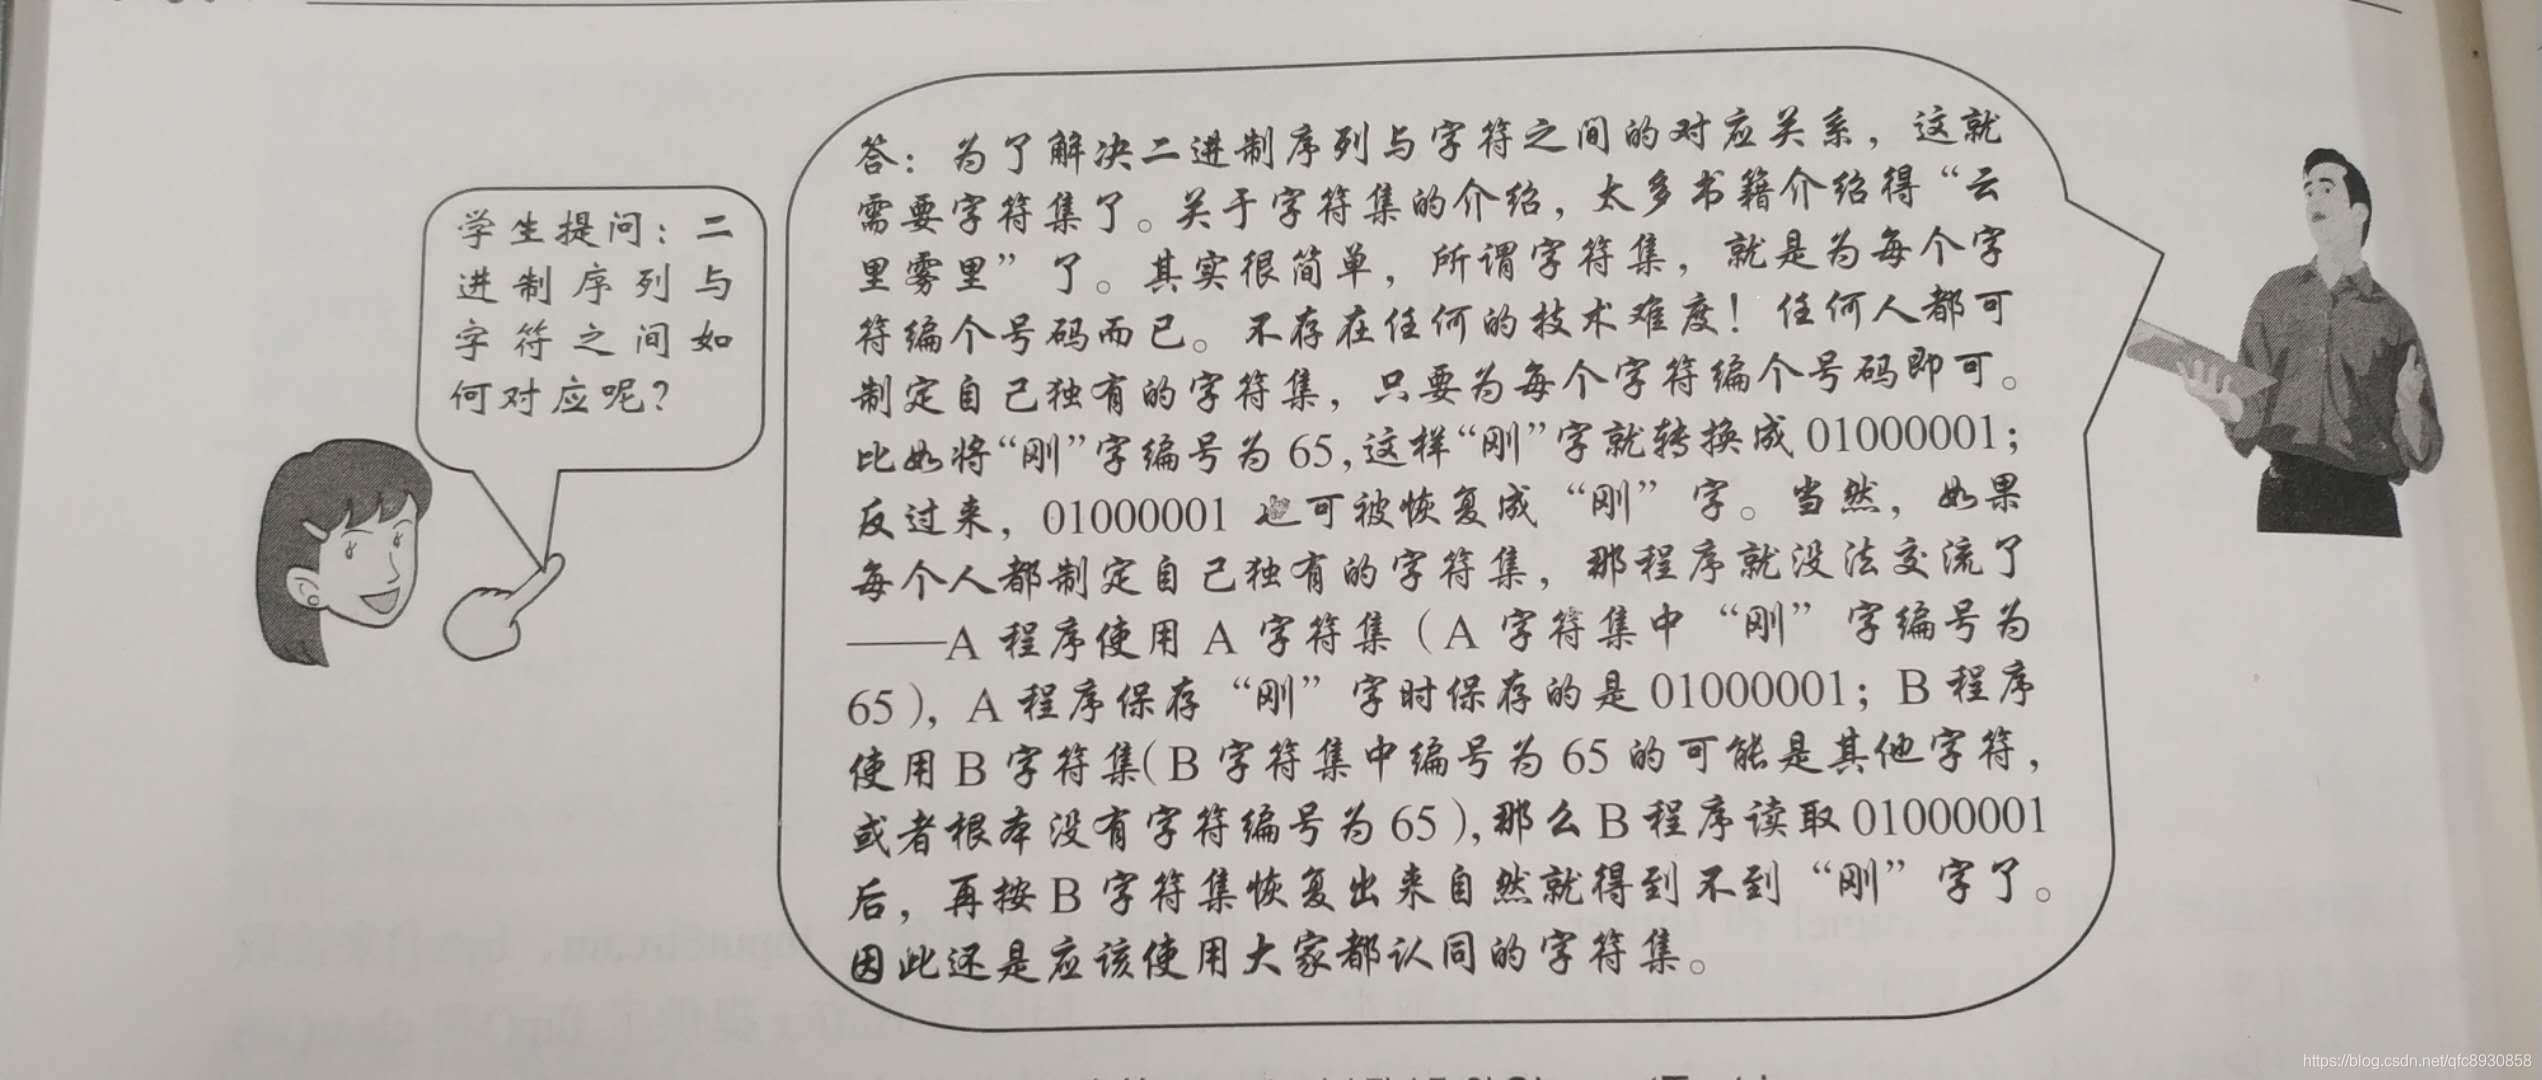 学生提问：二
进制序列与
字符之间如
何对应呢？
答：为了解决二进制序列与字符之间的对应关系，这就
需要字符集了。关于字符集的介绍，太多书籍介绍得“云
里雾里”了。其实很简单，所谓字符集，就是为每个字
符编个号码而已。不存在任何的技术难度！任何人都可
制定自己独有的字符集，只要为每个字符编个号码即可。
比如将“刚”字编号为 65，这样“刚”字就转换成 01000001；
反过来，01000001 也可被恢复成“刚”字。当然，如果
每个人都制定自己独有的字符集，那程序就没法交流了
——A 程序使用 A 字符集（A 字符集中“刚”字编号为
65），A 程序保存“刚”字时保存的是 01000001；B 程序
使用 B 字符集（B 字符集中编号为 65 的可能是其他字符，
或者根本没有字符编号为 65），那么 B 程序读取 01000001
后，再按 B 字符集恢复出来自然就得到不到“刚”字了。
因此还是应该使用大家都认同的字符集。
https://blog.csdn.net/qfc8930858